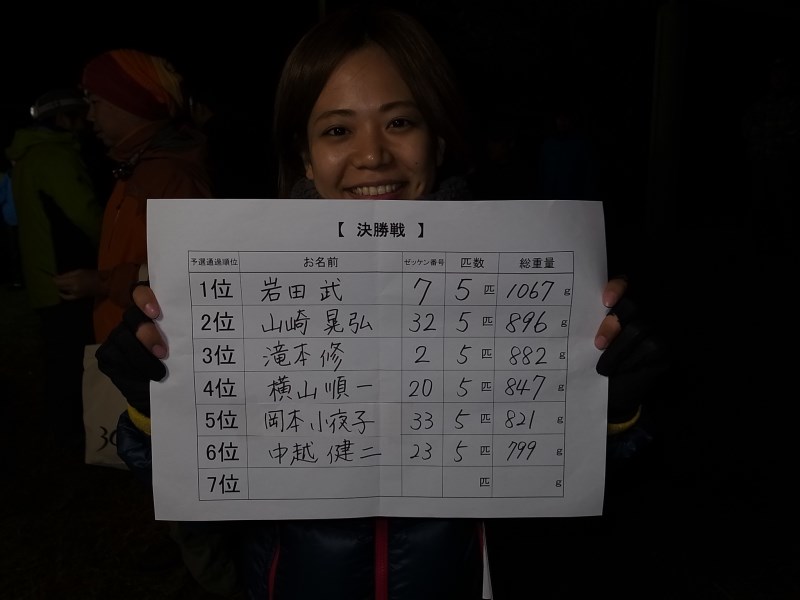 【 決勝戦 】
予選通過順位 お名前 ゼッケン番号 匹数 総重量
1位 岩田 武 7 5 匹 1067 g
2位 山崎 晃弘 32 5 匹 896 g
3位 滝本 修 2 5 匹 882 g
4位 横山 順一 20 5 匹 847 g
5位 岡本 小夜子 33 5 匹 821 g
6位 中越 健二 23 5 匹 799 g
7位 匹 g